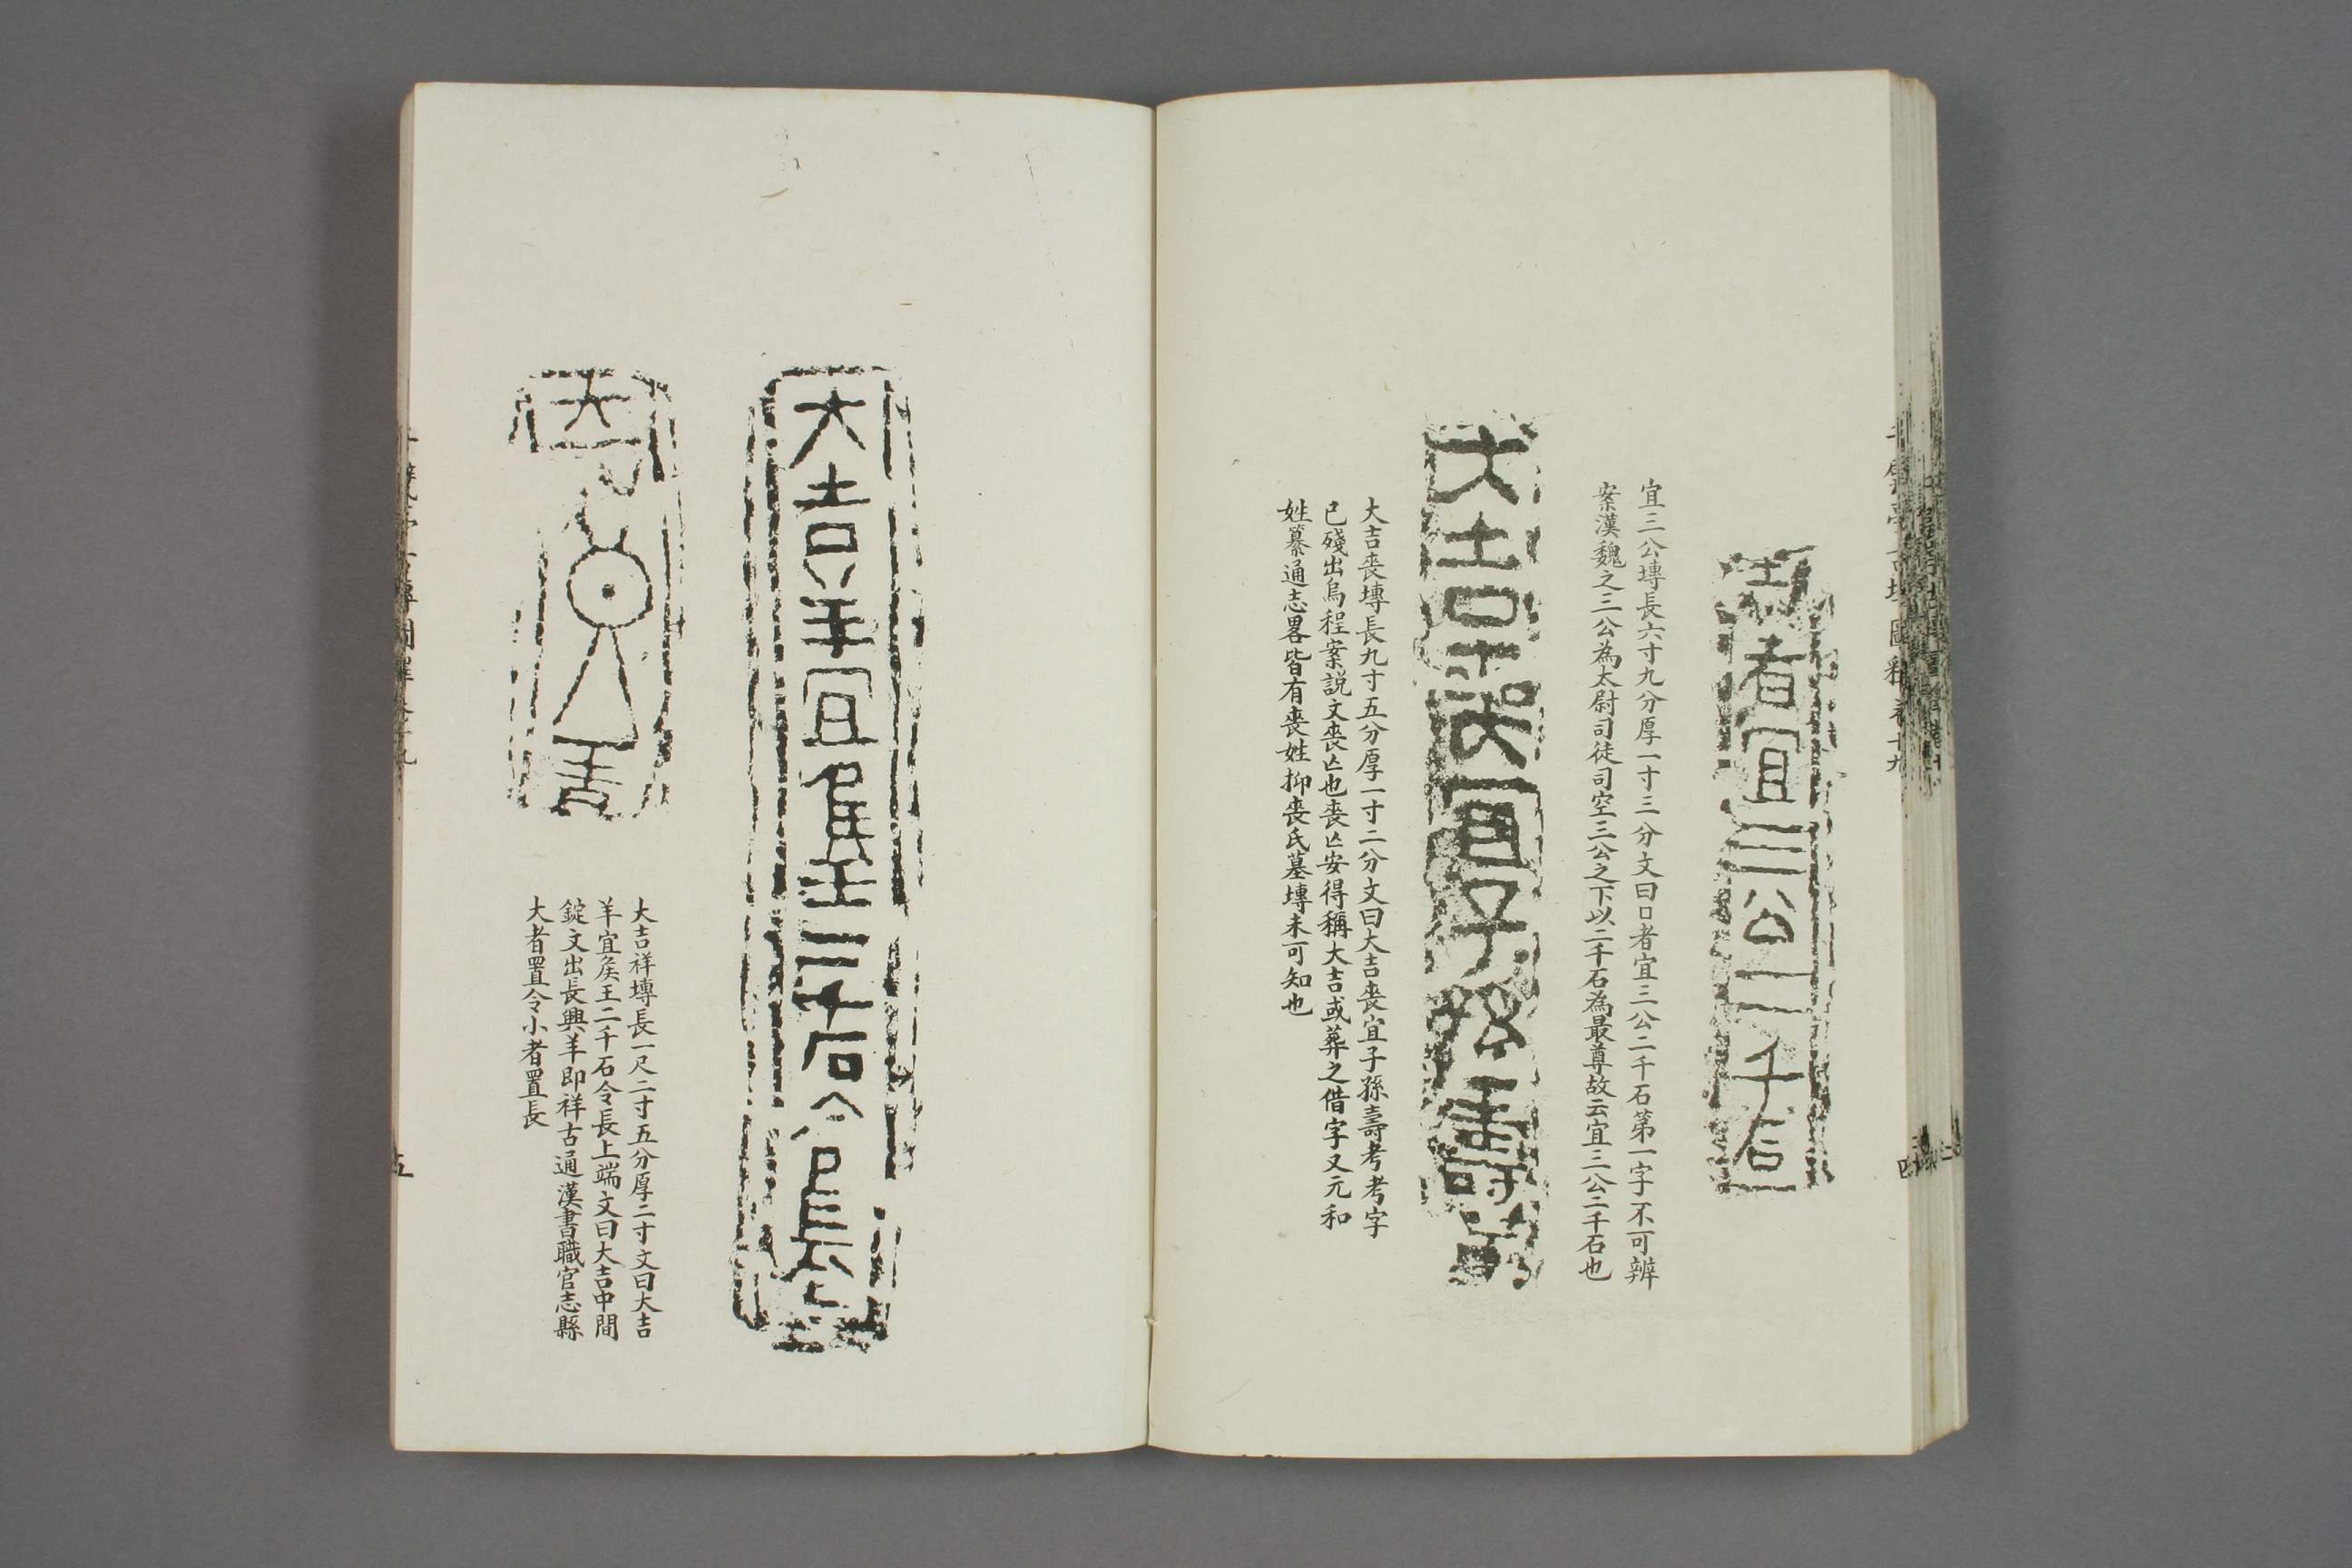 者宜三公二千石
宜三公塼長六寸九分厚一寸三分文曰口者宜三公二千石第一字不可辨
案漢魏之三公為太尉司徒司空三公之下以二千石為最尊故云宜三公二千石也
大吉喪宜子孫壽考
大吉喪塼長九寸五分厚一寸二分文曰大吉喪宜子孫壽考考字
已殘出烏程案説文喪亾也喪亾安得稱大吉或葬之借字又元和
姓纂通志畧皆有喪姓抑喪氏墓塼未可知也
大吉羊宜矦王二千石令長
大吉
大吉祥塼長一尺二寸五分厚二寸文曰大吉
羊宜矦王二千石令長上端文曰大吉中間
錠文出長興羊即祥古通漢書職官志縣
大者置令小者置長
五